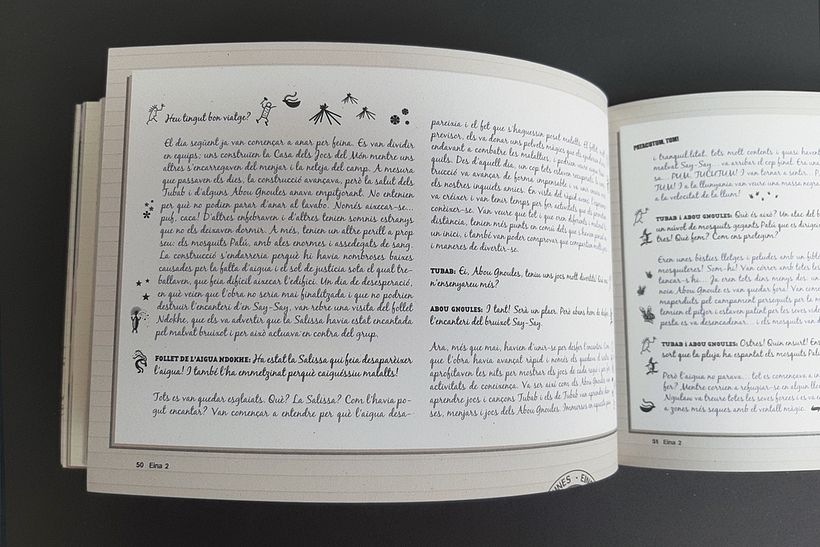 Heu tingut bon viatge?
El dia següent ja van començar a anar per feina. Es van dividir
en equips; uns construïen la Casa dels Jocs del Món mentre uns
altres s'encarregaven del menjar i la neteja del camp. A mesura
que passaven els dies, la construcció avançava, però la salut dels
Tubab i d'alguns Abou Gnoules anava empitjorant. No entenien
per què no podien parar d'anar al lavabo. Només aixecar-se...
puf, caca! D'altres enfebraven i d'altres tenien somnis estranys
que no els deixaven dormir. A més, tenien un altre perill a prop
seu: els mosquits Palú, amb ales enormes i assedegats de sang.
La construcció s'endarreria perquè hi havia nombroses baixes
causades per la falta d'aigua i el sol de justícia sota el qual tre-
ballaven, que feia difícil aixecar l'edifici. Un dia de desesperació,
en què veien que l'obra no seria mai finalitzada i que no podrien
destruir l'encanteri d'en Say-Say, van rebre una visita del follet
Ndokhe, que els va advertir que la Salissa havia estat encantada
pel malvat bruixot i per això actuava en contra del grup.
FOLLET DE L'AIGUA NDOKHE: Ha estat la Salissa qui feia desaparèixer
l'aigua! I també l'ha emmetzinat perquè caiguéssiu malalts!
Tots es van quedar esglaiats. Què? La Salissa? Com l'havia po-
gut encantar? Van començar a entendre per què l'aigua desa-
pareixia i el fet que s'haguessin posat malalts. El follet,
previsor, els va donar uns polvets màgics que els ajudarien
endavant a combatre les malalties, i podrien viure més tran-
quils. Des d'aquell dia, un cop tots estaven recuperats, la cons-
trucció va avançar de forma imponible, i va unir més
els nostres inquiets amics. En vista del ràpid avanç,
va créixer i van tenir temps per fer activitats que els permetien
conèixer-se. Van veure que tot i que eren diferents i
distància, tenien més punts en comú dels que s'havien pensat
un inici, i també van poder comprovar que compartien molts jocs
i maneres de divertir-se.
TUBAB: Ei, Abou Gnoules, teniu uns jocs molt divertits! Ens en
n'ensenyareu més?
ABOU GNOULES: I tant! Serà un plaer. Però abans hem de
l'encanteri del bruixot Say-Say.
Ara, més que mai, havien d'unir-se per desfer l'encanteri. Com
que l'obra havia avançat ràpid i només els quedava el
aprofitaven les nits per mostrar els jocs de cada regió i per fer
activitats de coneixença. Va ser així com els Abou Gnoules van
aprendre jocs i cançons Tubab i els de Tubab van aprendre dan-
ses, menjars i jocs dels Abou Gnoules. Immersos en aquesta
50 Eina 2
PATACUTUM, TOM!
i tranquil·litat, tots molt contents i quasi havent
malvat Say-Say... va arribar el cep final. Era una
se... PUM TUCUTUM! I van tornar a sentir...
TUM! I a la llunyania van veure una massa negra
a la velocitat de la llum!
TUBAB i ABOU GNOULES: Què és això? Un atac del
un núvol de mosquits gegants Palú que es dirigeix
tres! Què fem? Com ens protegim?
Eren unes bèsties lletges i peludes amb un fibló
mosquiteres! Som-hi! Van córrer amb totes les
tancar-s'hi... Ja eren tots dins menys dos: un
noia Abou Gnoule es van quedar fora! Van començar
maperduts pel campament perseguits per la
temien el pitjor i estaven patint per les seves vides
pesta es va desencadenar... i els mosquits van
TUBAB i ABOU GNOULES: Ostres! Quin ensurt! Ens
sort que la pluja ha espantat els mosquits Palú
Però l'aigua no parava... tot es començava a
fer? Mentre corrien a refugiar-se en algun lloc
Nguteau va treure totes les seves forces i es va
a zones més segures amb el ventall màgic.
51 Eina 2
INES · EIN